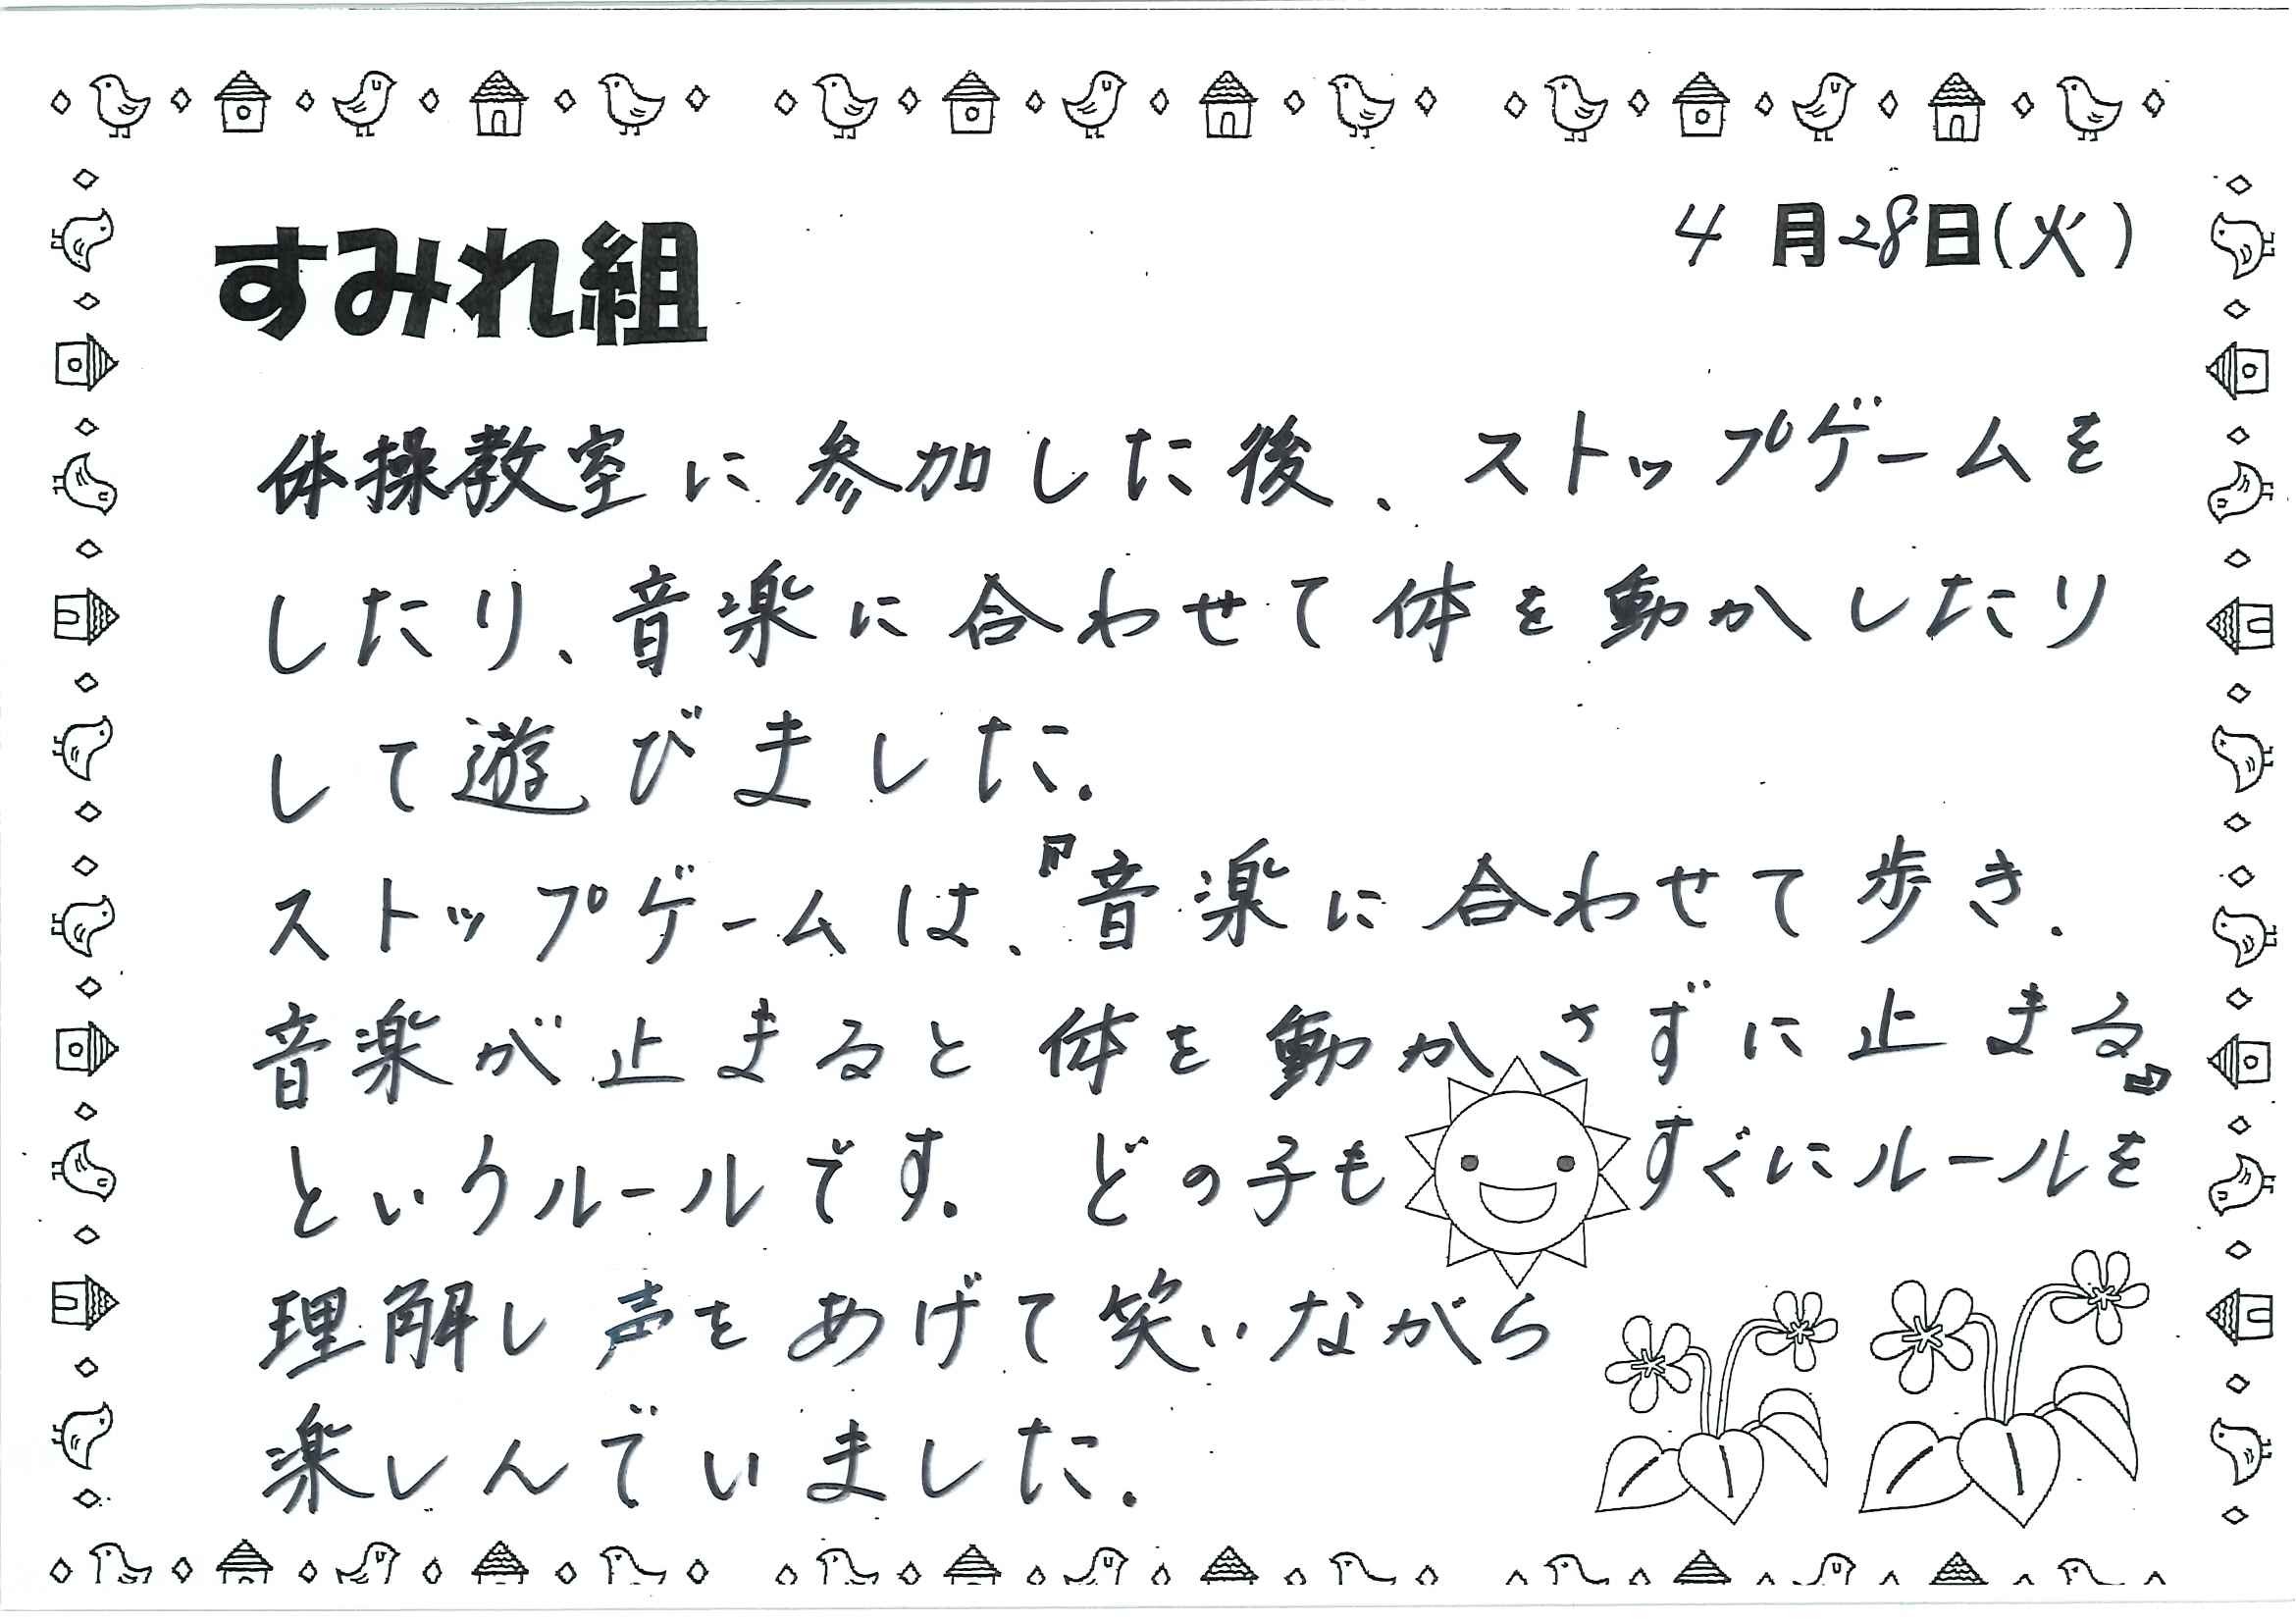 すみれ組
4月28日(火)
体操教室に参加した後、ストップゲームを
したり、音楽に合わせて体を動かしたり
して遊びました.
ストップゲームは、『音楽に合わせて歩き.
音楽が止まると体を動かさずに止まる』
というルールです. どの子もすぐにルールを
理解し声をあげて笑いながら
楽しんでいました.